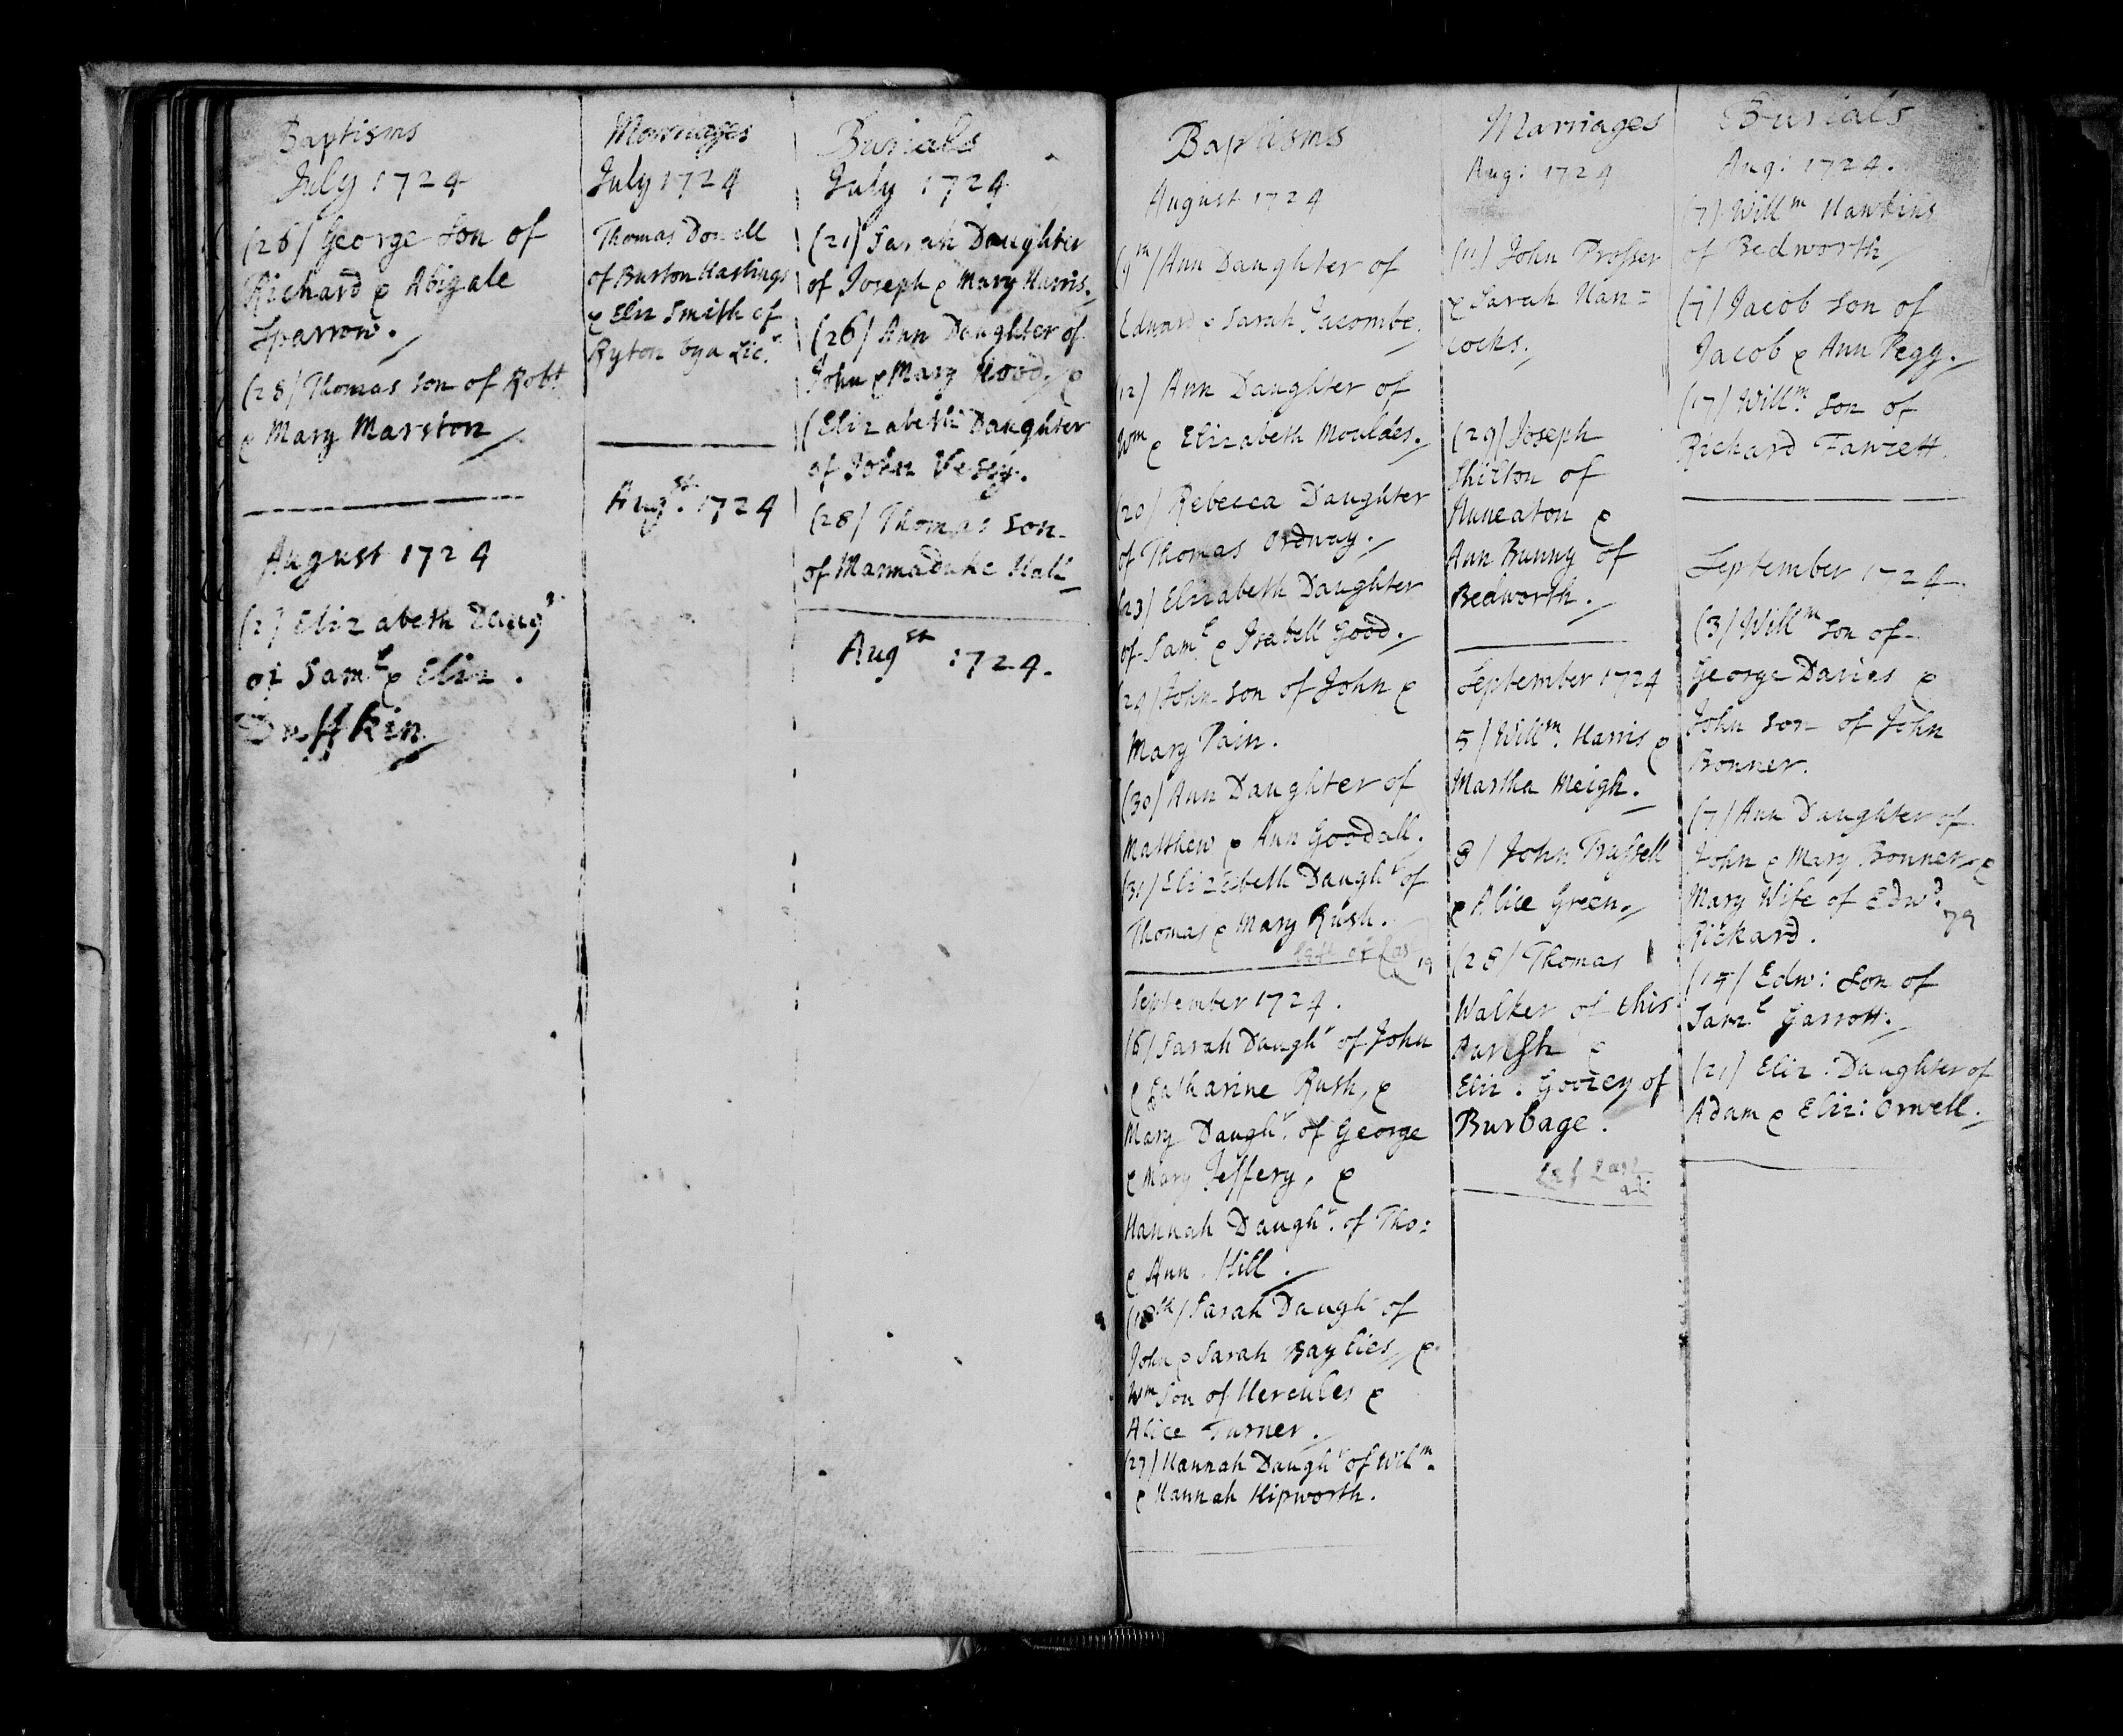 Baptisms
July 1724
(26) George Son of
Richard & Abigale
Sparrow.
(28) Thomas Son of Robt
& Mary Marston
August 1724
(2) Elizabeth Daugr
of Saml & Eliz.
Marriages
July 1724
Thomas
of Burton Hastings
& Eliz Smith of
Ryton by a Lic.
Augst. 1724
Burials
July 1724
(21) Sarah Daughter
of Joseph & Mary Harris.
(26) Ann Daughter of
John & Mary Hood, &
(Elizabeth Daughter
of John Vessy.
(28) Thomas Son
of Marmaduke Hall
Augst 1724.
Baptisms
August 1724
(9th) Ann Daughter of
Edward & Sarah Jacombe.
(12) Ann Daughter of
Wm & Elizabeth Mouldes.
(20) Rebecca Daughter
of Thomas Ordway.
(23) Elizabeth Daughter
of Saml & Isabell Good.
(29) John Son of John &
Mary Pain.
(30) Ann Daughter of
Matthew & Ann Goodall.
(31) Elizebeth Daughr of
Thomas & Mary Rush.
September 1724.
(6) Sarah Daughr of John
& Catharine Rush, &
Mary Daughr. of George
& Mary Jeffery, &
Hannah Daughr. of Tho:
& Ann Hill.
(18th) Sarah Daugh of
John & Sarah Baylies, &
Wm Son of Hercules &
Alice Turner.
(27) Hannah Daughr of Willm.
& Hannah Hipworth.
Marriages
Aug: 1724
(11) John Prosser
& Sarah Han=
cocks.
(29) Joseph
Shilton of
Nuneaton &
Ann Bunny of
Bedworth.
September 1724
5) Willm. Harris &
Martha Meigh.
8) John Trussell
& Alice Green.
(28) Thomas
Walker of this
Parish &
Eliz. Goozey of
Burbage.
Burials
Aug: 1724.
(7) Willm Hawkins
of Bedworth
(7) Jacob Son of
Jacob & Ann Pegg.
(17) Willm. Son of
Richard Fawzett.
September 1724
(3) Willm Son of
George Davies &
John Son of John
Bonner.
(7) Ann Daughter of
John & Mary Bonner &
Mary Wife of Edwd.
Rickard.
(15) Edw: Son of
Saml Garrott.
(21) Eliz: Daughter of
Adam & Eliz: Orwell.